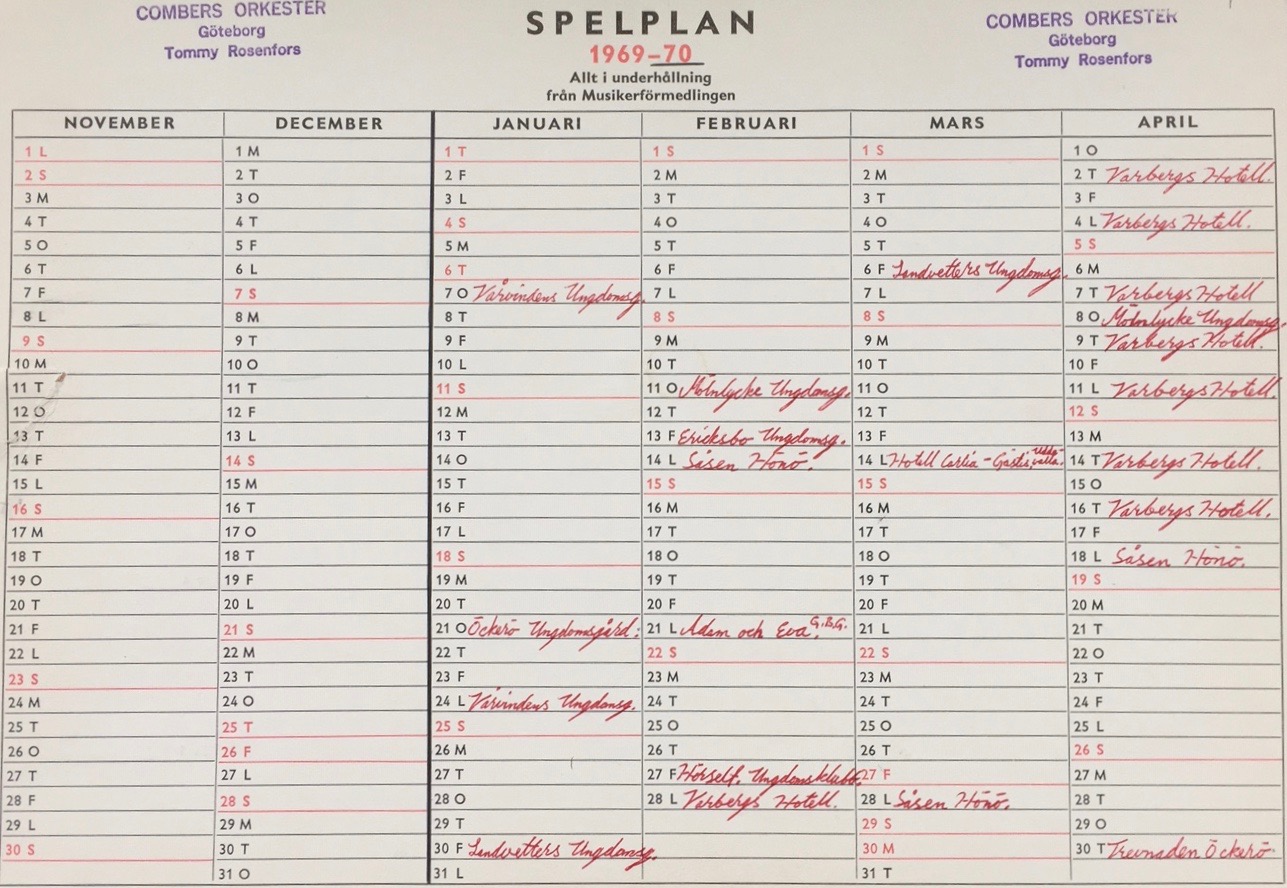 COMBERS ORKESTER
Göteborg
Tommy Rosenfors
SPELPLAN
1969–70
Allt i underhållning
från Musikerförmedlingen
COMBERS ORKESTER
Göteborg
Tommy Rosenfors
NOVEMBER
1 L
2 S
3 M
4 T
5 O
6 T
7 F
8 L
9 S
10 M
11 T
12 O
13 T
14 F
15 L
16 S
17 M
18 T
19 O
20 T
21 F
22 L
23 S
24 M
25 T
26 O
27 T
28 F
29 L
30 S
DECEMBER
1 M
2 T
3 O
4 T
5 F
6 L
7 S
8 M
9 T
10 O
11 T
12 F
13 L
14 S
15 M
16 T
17 O
18 T
19 F
20 L
21 S
22 M
23 T
24 O
25 T
26 F
27 L
28 S
29 M
30 T
31 O
JANUARI
1 T
2 F
3 L
4 S
5 M
6 T
7 O Vårvindens Ungdomsg.
8 T
9 F
10 L
11 S
12 M
13 T
14 O
15 T
16 F
17 L
18 S
19 M
20 T
21 O Öckerö Ungdomsgård.
22 T
23 F
24 L Vårvindens Ungdomsg.
25 S
26 M
27 T
28 O
29 T
30 F Landvetters Ungdomsg.
31 L
FEBRUARI
1 S
2 M
3 T
4 O
5 T
6 F
7 L
8 S
9 M
10 T
11 O Mölnlycke Ungdomsg.
12 T
13 F Ericksbo Ungdomsg.
14 L Såsen Hönö.
15 S
16 M
17 T
18 O
19 T
20 F
21 L Adam och Eva. G.B.G.
22 S
23 M
24 T
25 O
26 T
27 F Hörself. Ungdomsklubb.
28 L Varbergs Hotell.
MARS
1 S
2 M
3 T
4 O
5 T
6 F Landvetters Ungdomsg.
7 L
8 S
9 M
10 T
11 O
12 T
13 F
14 L Hotell Carlia - Gästis, Uddevalla.
15 S
16 M
17 T
18 O
19 T
20 F
21 L
22 S
23 M
24 T
25 O
26 T
27 F
28 L Såsen Hönö.
29 S
30 M
31 T
APRIL
1 O
2 T Varbergs Hotell.
3 F
4 L Varbergs Hotell.
5 S
6 M
7 T Varbergs Hotell
8 O Mölnlycke Ungdomsg.
9 T Varbergs Hotell.
10 F
11 L Varbergs Hotell.
12 S
13 M
14 T Varbergs Hotell.
15 O
16 T Varbergs Hotell.
17 F
18 L Såsen Hönö.
19 S
20 M
21 T
22 O
23 T
24 F
25 L
26 S
27 M
28 T
29 O
30 T Trevnaden Öckerö.